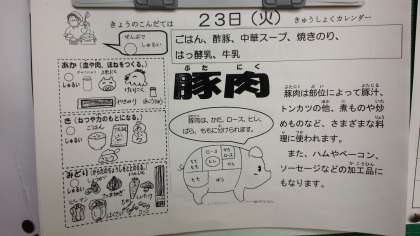 きょうのこんだては
２３日（火）
きゅうしょくカレンダー
ぜんぶで
しゅるい
ごはん、酢豚、中華スープ、焼きのり、
はっ酵乳、牛乳
あか（血や肉、ほねをつくる。）
しゅるい
ぶた にく
豚肉
き（ねつや力のもとになる。）
しゅるい
ごはん
みどり（からだのちょうしをととのえる。）
しゅるい
ピーマン
豚肉は、かた、ロース、ヒレ、
ばら、ももに分けられます。
ロース
かた
ロース
ヒレ
もも
ばら
かた
豚肉は部位によって豚汁、
トンカツの他、煮ものや炒
めものなど、さまざまな料
理に使われます。
また、ハムやベーコン、
ソーセージなどの加工品に
もなります。